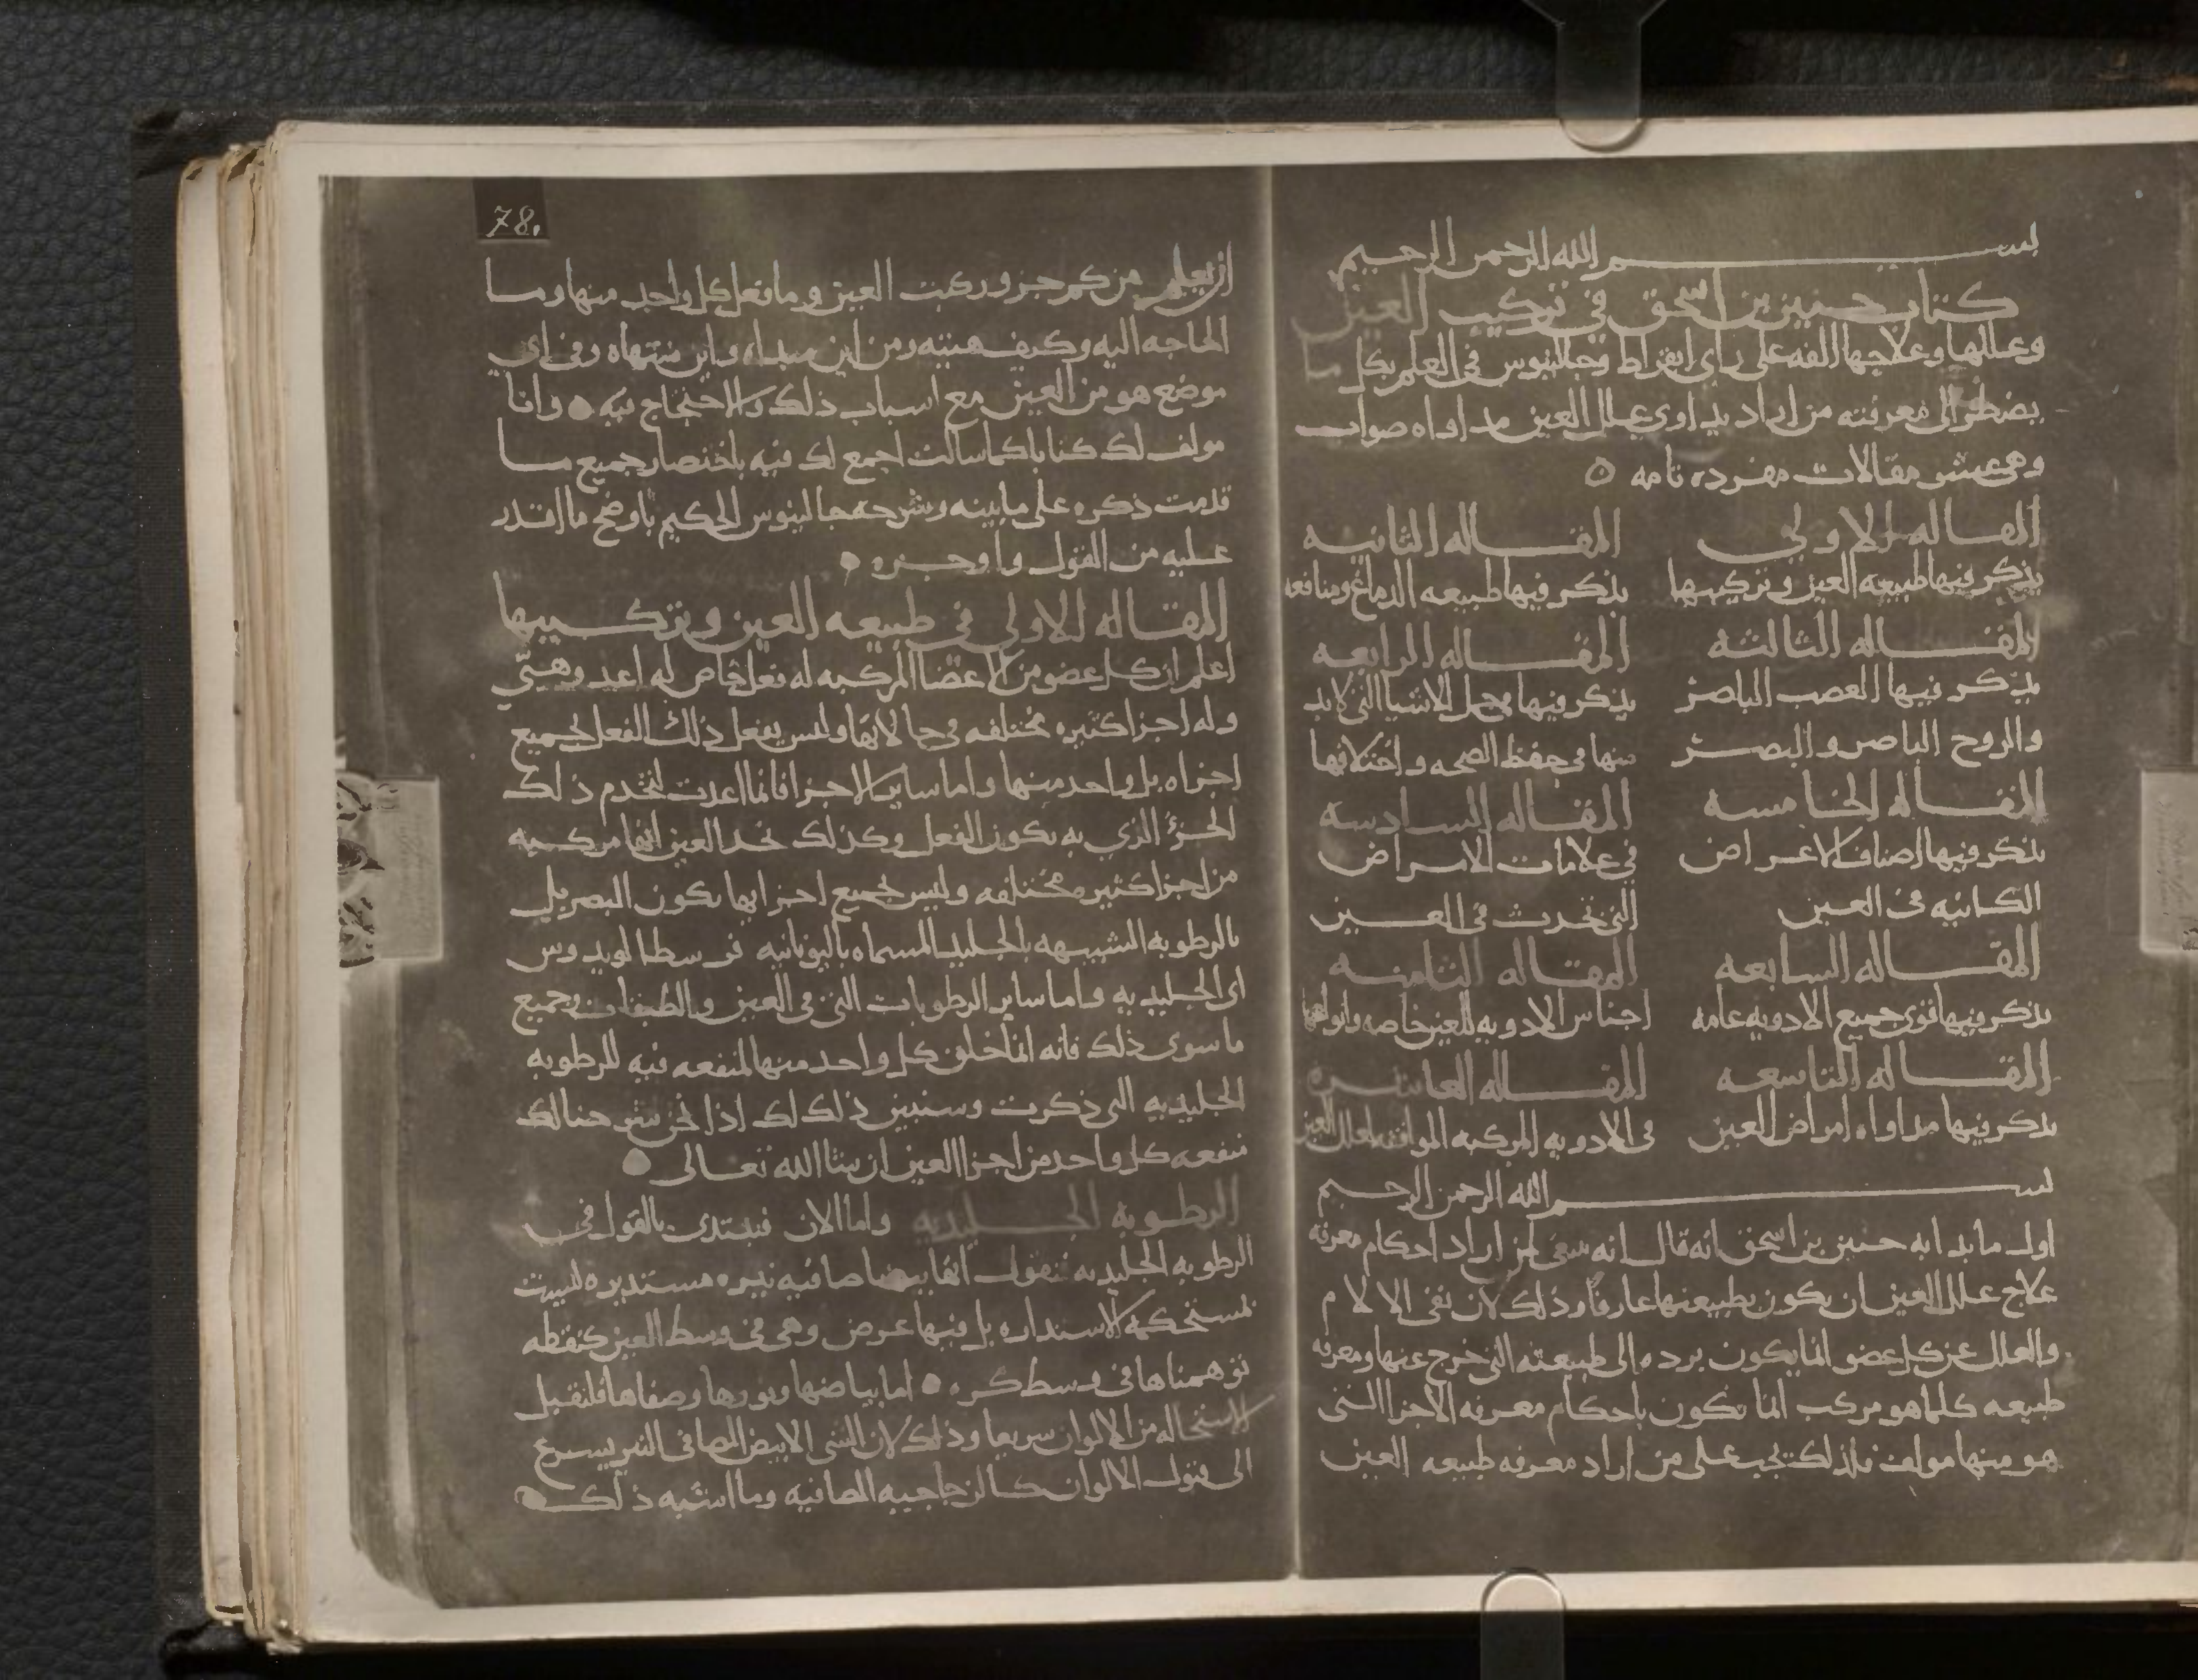 بسم الله الرحمن الرحيم
كتاب حنين بن اسحق في تركيب العين
وعللها وعلاجها الفه على راى ابقراط وجالينوس في العلم بكل ما
يضطر الى معرفته من اراد يداوى علل العين مداواه صواب
وهى عشر مقالات مفرده تامه ه
المقاله الاولى
يذكر فيها طبيعه العين وتركيبها
المقاله الثانيه
يذكر فيها طبيعه الدماغ ومنافعه
المقاله الثالثه
يذكر فيها العصب الباصر
والروح الباصر والبصر
المقاله الرابعه
يذكر فيها جمل الاشيا التى لابد
منها في حفظ الصحه واختلافها
المقاله الخامسه
يذكر فيها اصناف الاعراض
الكائنه فى العين
المقاله السادسه
في علامات الامراض
التى تحدث فى العين
المقاله السابعه
يذكر فيها قوى جميع الادويه عامه
المقاله الثامنه
اجناس الادويه للعين خاصه وانواعها
المقاله التاسعه
يذكر فيها مداواه امراض العين
المقاله العاشره
فى الادويه المركبه الموافقه لعلل العين
بسم الله الرحمن الرحيم
اول ما بدا به حنين بن اسحق انه قال انه ينبغى لمن اراد احكام معرفه
علاج علل العين ان يكون بطبيعتها عارفا وذلك لان نفى الالام
والعلل عن كل عضو انما يكون برده الى طبيعته التى خرج عنها ومعرفه
طبيعه كلما هو مركب انما تكون باحكام معرفه الاجزا التى
هو منها مولف فلذلك يجب على من اراد معرفه طبيعه العين
78.
ان يعلم من كم جزو ركبت العين وما فعل كل واحد منها وما
الحاجه اليه وكيف هيئته ومن اين مبداه واين منتهاه وفى اي
موضع هو من العين مع اسباب ذلك والاحتجاج فيه • وانا
مولف لك كتابا كما سالت اجمع لك فيه باختصار جميع ما
قدمت ذكره على ما بينه وشرحه جالينوس الحكيم باوضح ما اقدر
عليه من القول واوجزه •
المقاله الاولى في طبيعه العين وتركيبها
اعلم ان كل عضو من الاعضا المركبه له فعل خاص له اعد وهيّي
وله اجزا كثيره مختلفه في حالاتها وليس يفعل ذلك الفعل بجميع
اجزاه بل واحد منها واما ساير الاجزا فانما اعدت لتخدم ذلك
الجزؤ الذي به يكون الفعل وكذلك نجد العين انها مركبه
من اجزا كثيره مختلفه وليس بجميع اجزايها يكون البصر بل
بالرطوبه الشبيهه بالجليد المسماه باليونانيه قرسطالويدوس
اى الجليديه واما ساير الرطوبات التى فى العين والطبقات وجميع
ما سوى ذلك فانه انما خلق كل واحد منها لمنفعه فيه للرطوبه
الجليديه التى ذكرت وسنبين ذلك لك اذا نحن شرحنا لك
منفعه كل واحد من اجزا العين ان شا الله تعالى •
الرطوبه الجليديه واما الان فنبتدى بالقول فى
الرطوبه الجليديه فنقول انها بيضا صافيه نيره مستديره ليست
مستحكمه الاستداره بل فيها عرض وهى فى وسط العين كنقطه
توهمناها فى وسط كره • اما بياضها ونورها وصفاها فلتقبل
الاستحاله من الالوان سريعا وذلك لان الشى الابيض الصافى النير يسرع
الى قبول الالوان كالزجاجيه الصافيه وما اشبه ذلك •